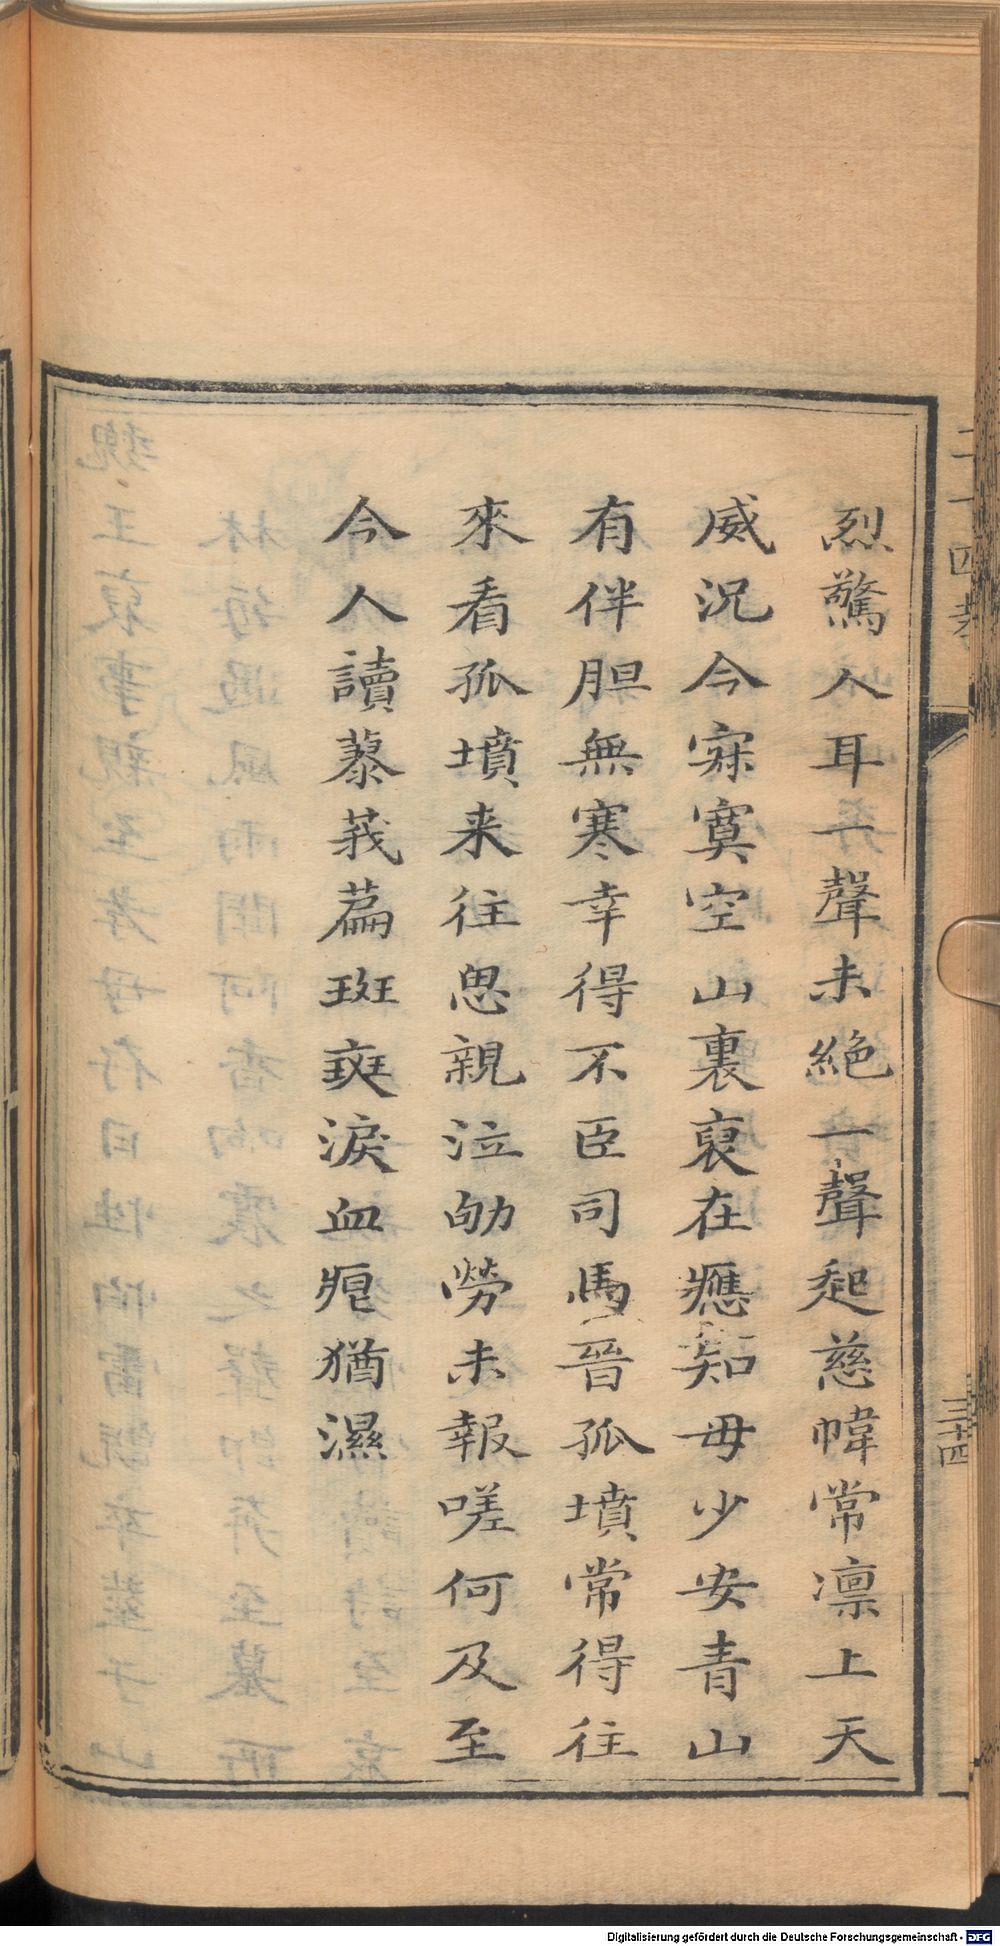 烈驚人耳一聲未絶一聲起慈幃常凛上天
威况今寂寞空山裏裒在應知毋少安青山
有伴胆無寒幸得不臣司馬晉孤墳常得往
來看孤墳来往思親泣劬勞未報嗟何及至
今人讀蓼莪篇斑斑淚血痕猶濕
二十四孝
三十四
Digitalisierung gefördert durch die Deutsche Forschungsgemeinschaft - DFG